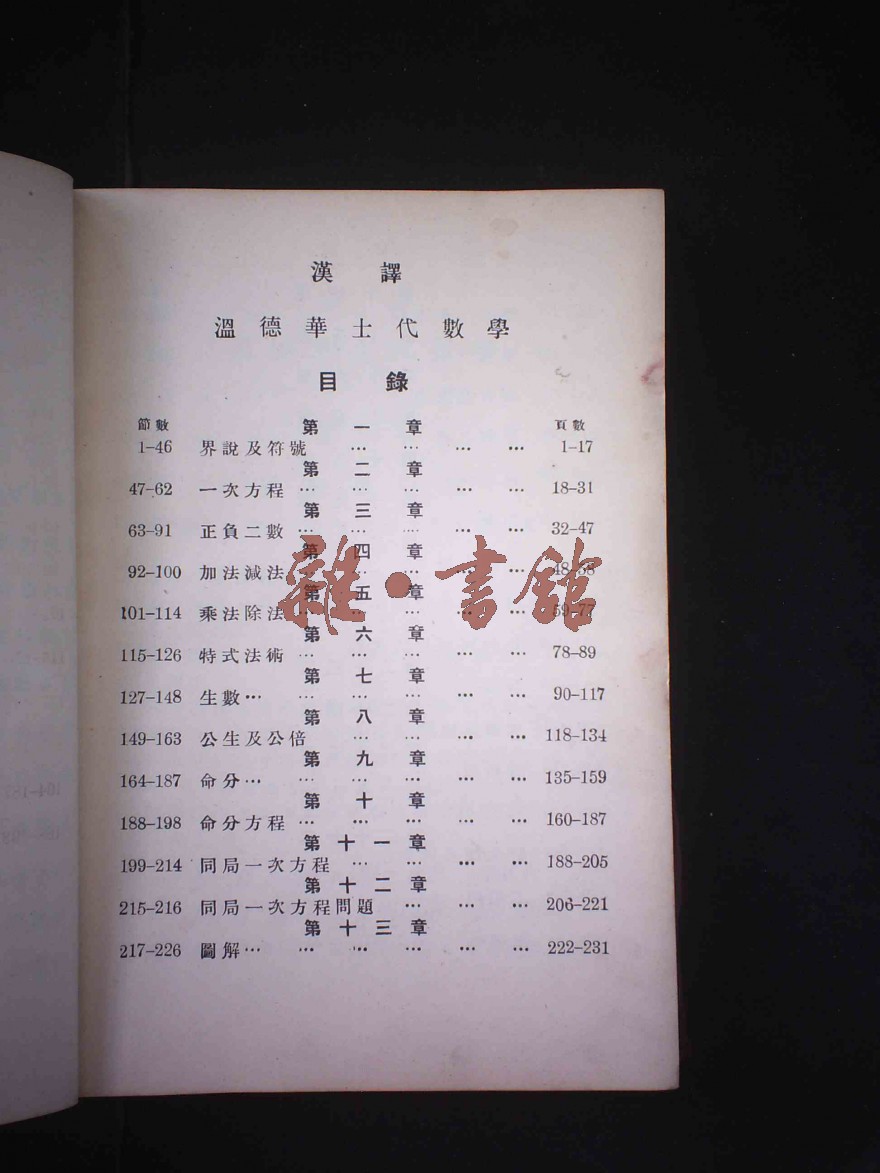 漢譯
溫德華士代數學
目錄
節數 第一章 頁數
1–46 界說及符號 … … … … 1–17
第二章
47–62 一次方程 … … … … 18–31
第三章
63–91 正負二數 … … … … 32–47
第四章
92–100 加法減法 … … … … 48–58
第五章
101–114 乘法除法 … … … … 59–77
第六章
115–126 特式法術 … … … … 78–89
第七章
127–148 生數 … … … … … 90–117
第八章
149–163 公生及公倍 … … … … 118–134
第九章
164–187 命分 … … … … … 135–159
第十章
188–198 命分方程 … … … … … 160–187
第十一章
199–214 同局一次方程 … … … … 188–205
第十二章
215–216 同局一次方程問題 … … … 206–221
第十三章
217–226 圖解 … … … … … … 222–231
雜·書館